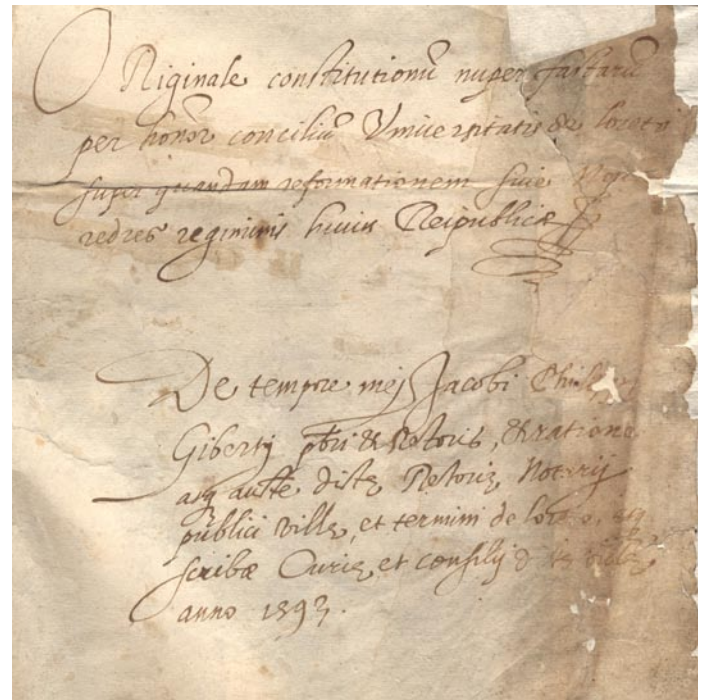 ORiginale constitutionũ nuper factarũ
per honor conciliũ Vniuersitatis de loreto
super quandam reformationem siue
redres regiminis huius Reipublicæ
De tempore mej Jacobi
Giberty pbri & Rectoris, & ratione
atq auctte dictę Rectorię, Notarij
publici villę, et termini de loreto, atq
scribæ Curię, et consilij
anno 1593.